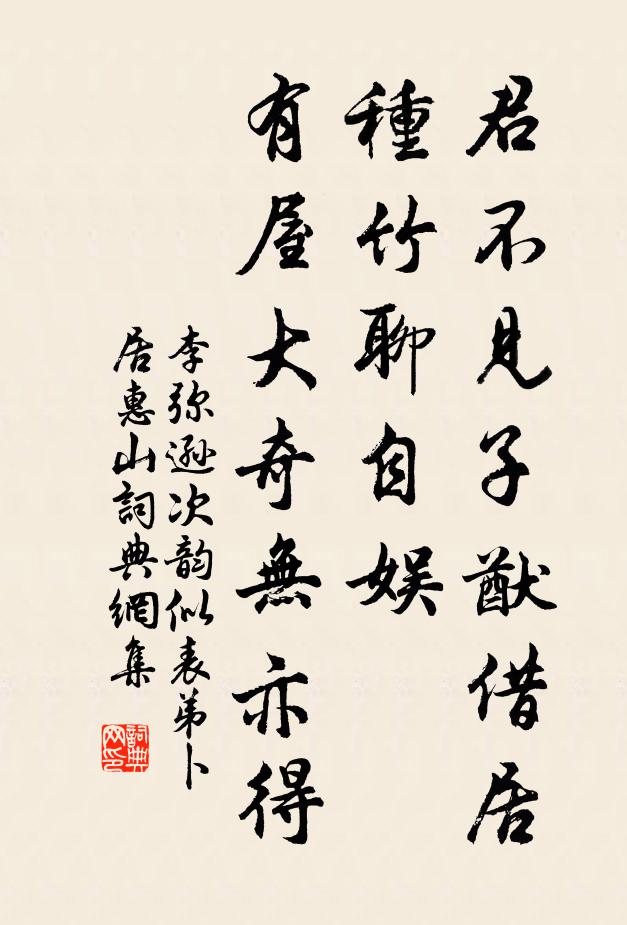 君不見子猷借居
種竹聊自娱
有屋大奇無亦得
李弥遜次韵似表弟卜
居惠山詞典網集
詞典
网印